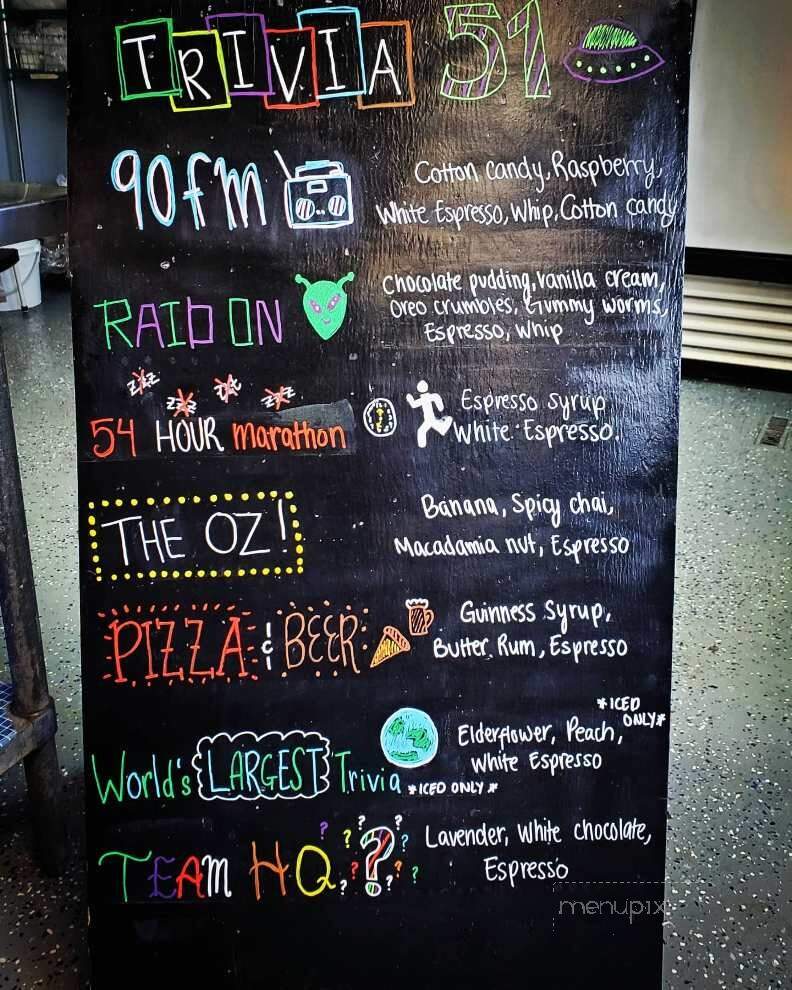 TRIVIA 51
90fm
Cotton candy, Raspberry,
White Espresso, Whip, Cotton candy
RAID ON
Chocolate pudding, vanilla cream,
Oreo crumbles, Gummy worms,
Espresso, Whip
zzz zzz zzz zzz
54 HOUR marathon
Espresso syrup
White Espresso.
THE OZ!
Banana, Spicy chai,
Macadamia nut, Espresso
PIZZA & BEER
Guinness Syrup,
Butter Rum, Espresso
World's LARGEST Trivia *ICED ONLY*
*ICED
ONLY*
Elderflower, Peach,
White Espresso
TEAM HQ ?
Lavender, White chocolate,
Espresso
menupix